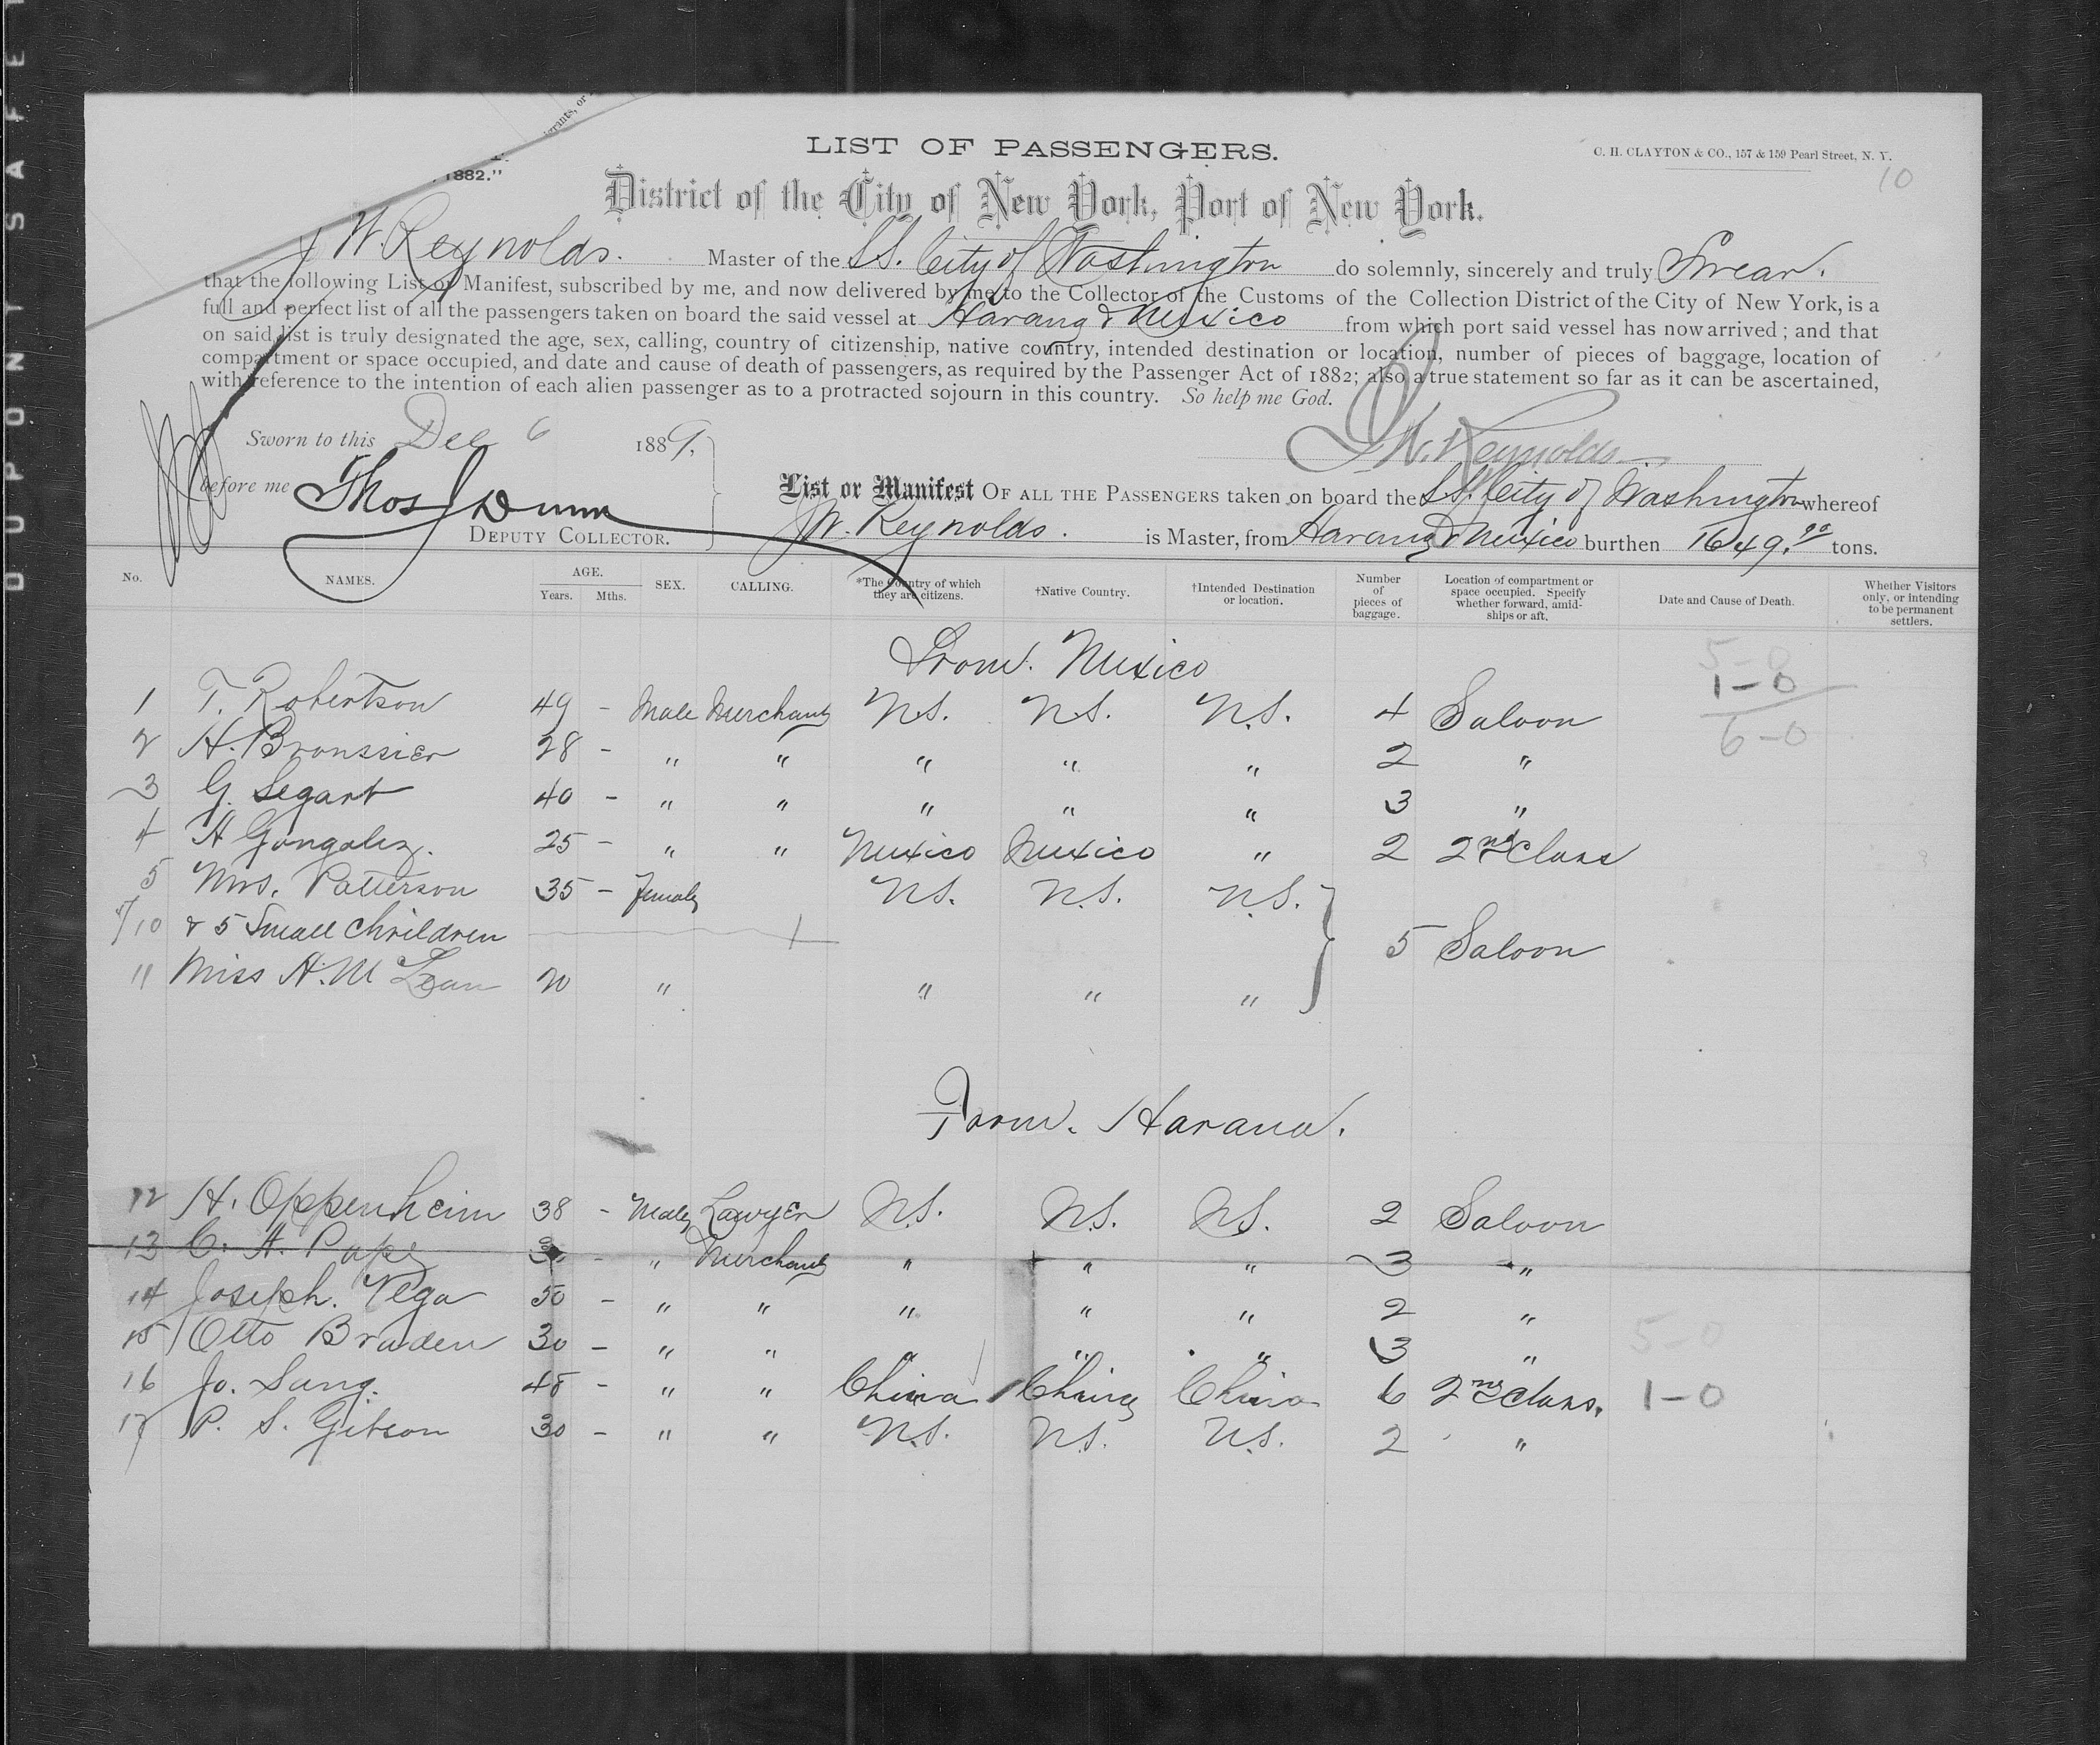 DUPONT SAFE
grants, or
1882."
LIST OF PASSENGERS.
C. H. CLAYTON & CO., 157 & 159 Pearl Street, N. Y.
10
District of the City of New York, Port of New York.
J W Reynolds. Master of the SS. City of Washington do solemnly, sincerely and truly Swear.
that the following List or Manifest, subscribed by me, and now delivered by me to the Collector of the Customs of the Collection District of the City of New York, is a
full and perfect list of all the passengers taken on board the said vessel at Havana & Mexico from which port said vessel has now arrived; and that
on said list is truly designated the age, sex, calling, country of citizenship, native country, intended destination or location, number of pieces of baggage, location of
compartment or space occupied, and date and cause of death of passengers, as required by the Passenger Act of 1882; also a true statement so far as it can be ascertained,
with reference to the intention of each alien passenger as to a protracted sojourn in this country. So help me God.
Sworn to this Dec 6 1889,
J W. Reynolds
before me Thos J Dunn
DEPUTY COLLECTOR.
List or Manifest OF ALL THE PASSENGERS taken on board the SS. City of Washington whereof
J W. Reynolds. is Master, from Havana & Mexico burthen 1649. 90 tons.
No. NAMES. AGE. Years. Mths. SEX. CALLING. *The Country of which they are citizens. †Native Country. †Intended Destination or location. Number of pieces of baggage. Location of compartment or space occupied. Specify whether forward, amidships or aft. Date and Cause of Death. Whether Visitors only, or intending to be permanent settlers.
From. Mexico
5-0
1-0
6-0
1 T. Robertson 49 - Male Merchant U.S. U.S. U.S. 4 Saloon
2 H. Bronssier 28 - " " " " " 2 "
3 G. Segart 40 - " " " " " 3 "
4 A Gongalez. 25 - " " Mexico Mexico " 2 2nd Class
5 Mrs. Patterson 35 - Female U.S. U.S. U.S.
6/10 & 5 Small Chrildren 5 Saloon
11 Miss H. M Lean 20 " " " "
From. Havana.
12 H. Oppenheim 38 - Male Lawyer U.S. U.S. U.S. 2 Saloon
13 C. H. Pape - " Merchant " " " 3 "
14 Joseph. Vega 50 - " " " " " 2 "
15 Otto Braden 30 - " " " " " 3 " 5-0
16 Jo. Sang. 48 - " " China China China 6 2nd Class. 1-0
17 P. S. Gibson 30 - " " U.S. U.S. U.S. 2 "